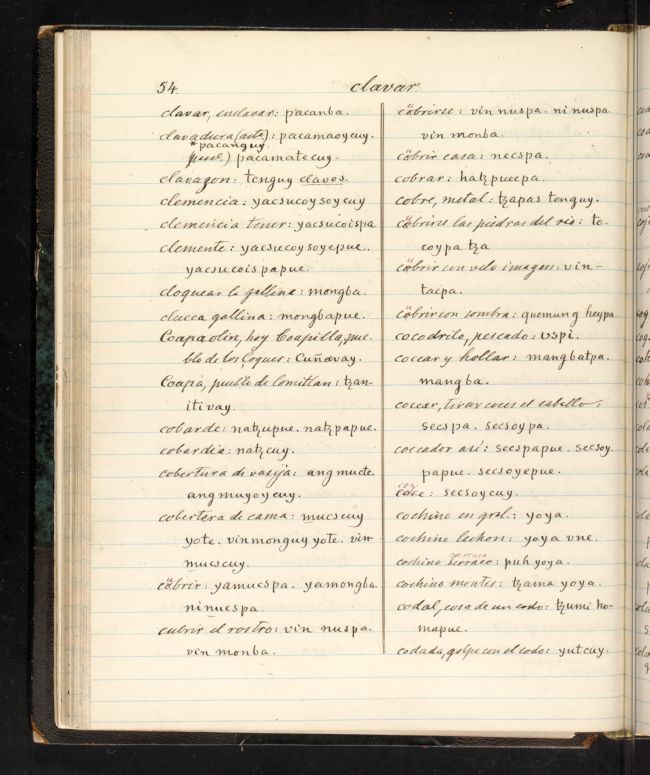 54
clavar
clavar, enclavar: pacanba.
clavadura (act.): pacamaoycuy.
*pacanguy
pas.) pacamatecuy.
clavazon: tenguy clavos.
clemencia: yacsucoysoycuy
clemencia tener: yacsucoispa
clemente: yacsucoysoyepue.
yacsucoispapue.
cloquear la gallina: mongba.
clueca gallina: mongbapue.
Coapaolin, hoy Coapilla, pue-
blo de los çoques: Cuñavay.
Coapa, pueblo de Comitlan: tzan-
itivay.
cobarde: natzupue. natzpapue.
cobardia: natzcuy.
cobertura de vasija: angmucte.
angmuyoycuy.
cobertera de cama: mucscuy
yote. vinmonguy yote. vin-
mucscuy.
cöbrir: yamucspa. yamongba
ninucspa.
cubrir el rostro: vin nuspa.
vin monba.
cöbrirse: vin nuspa. ninuspa
vin monba.
cöbrir casa: necspa.
cobrar: hatzpuecpa.
cobre, metal: tzapas tenguy.
cöbrirse las piedras del rio: to-
coypa tza
cöbrir con velo imagen: vin-
tacpa.
cöbrir con sombra: quemung heypa.
cocodrilo, pescado: uspi.
coccar y hollar: mangbatpa.
mangba.
coccar, tirar coces el caballo:
secspa. secsoypa.
coceador asi: secspapue. secsoy-
papue. secsoyepue.
coz
coce: secsoycuy.
cochino en gral.: yoya.
cochino lechon: yoya une.
verraco
cochino berraco: puh yoya.
cochino montes: tzama yoya.
codal, cosa de un codo: tzumi ho-
mapue.
codada, golpe con el codo: yutcuy.